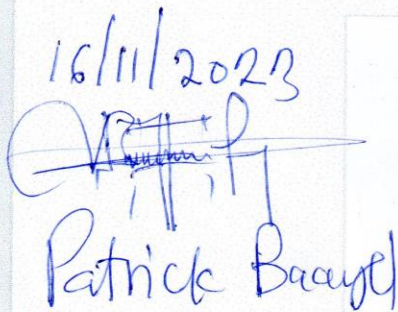 16/11/2023
Patrick Baayel